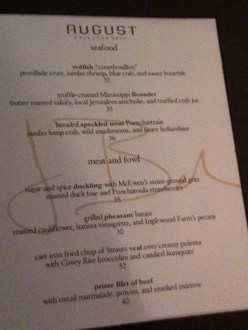 AUGUST
seafood
redfish "courtbouillon"
persillade crust, jumbo shrimp, blue crab, and sauce bouride
32
truffle-crusted Mississippi flounder
butter roasted salsify, local Jerusalem artichoke, and truffled crab jus
35
breaded speckled trout Pontchartrain
jumbo lump crab, wild mushrooms, and sauce hollandaise
36
meat and fowl
sugar and spice duckling with McEwen's stone-ground grits
roasted duck foie and Ponchatoula strawberries
35
grilled pheasant breast
roasted cauliflower, harissa vinaigrette, and Inglewood Farm's pecans
30
cast iron fried chop of Strauss veal over creamy polenta
with Covey Rise broccolini and candied kumquats
52
prime filet of beef
with oxtail marmalade, porcini, and smoked marrow
40